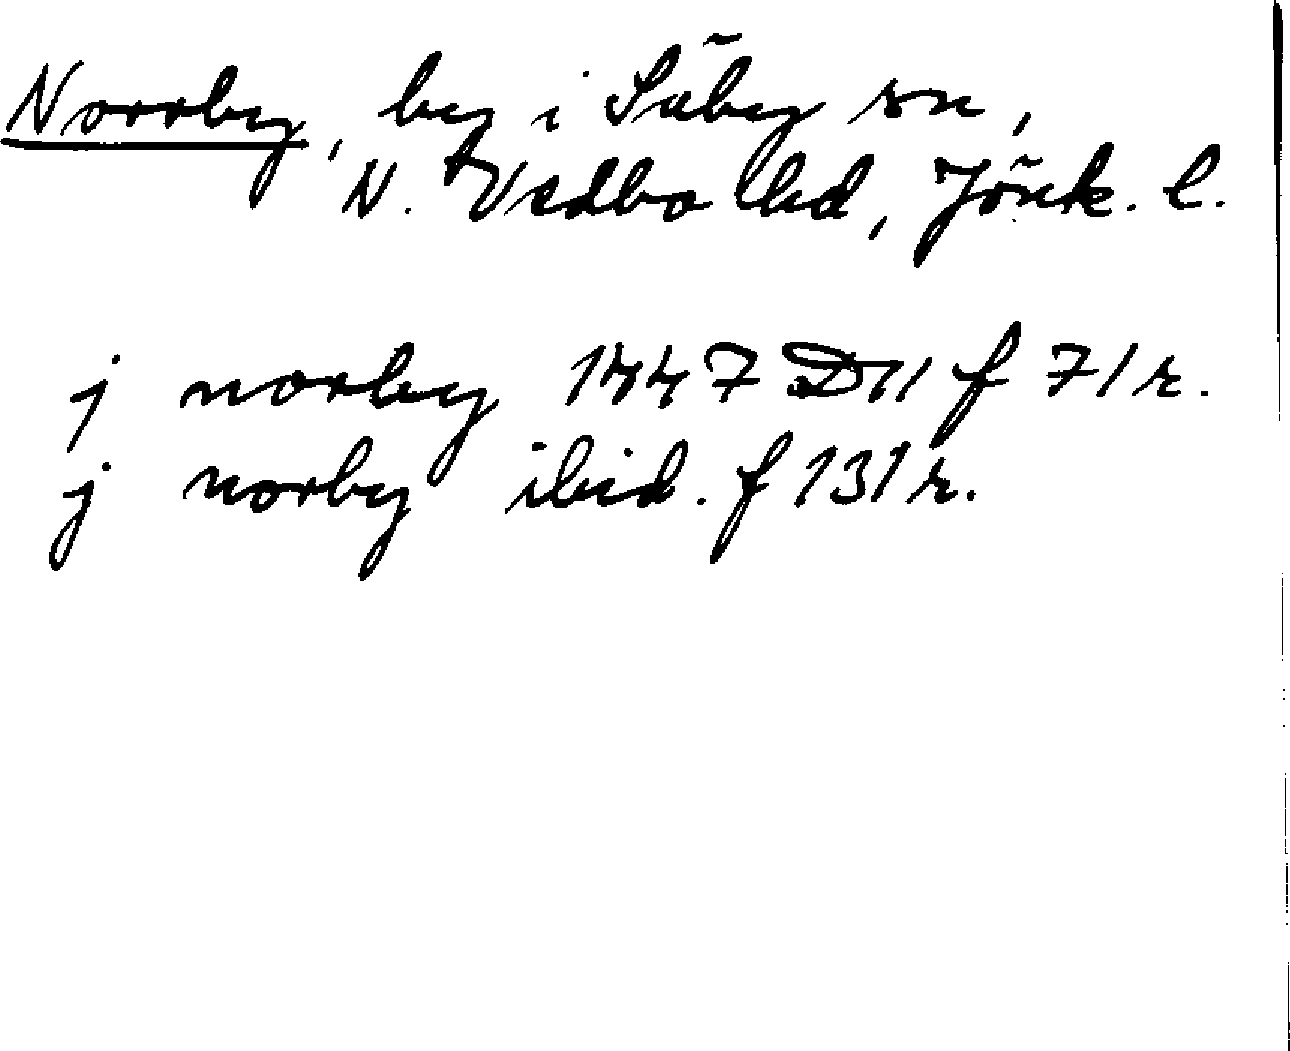 Norrby, by i Säby sn,
N. Vedbo hd, Jönk. l.
j norby 1447 D11 f 71 r.
j norby ibid. f 131 r.